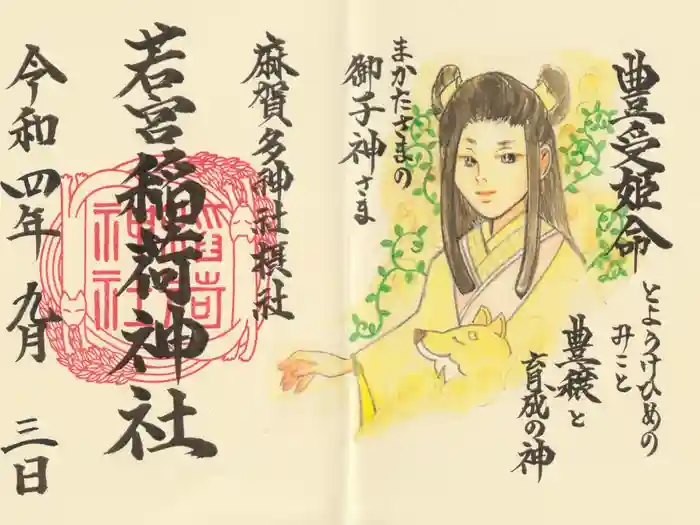 豊受姫命
とようけひめの
みこと
豊穣と
育成の神
まかたさまの
御子神さま
麻賀多神社摂社
若宮稲荷神社
令和四年九月三日
稲荷
神社